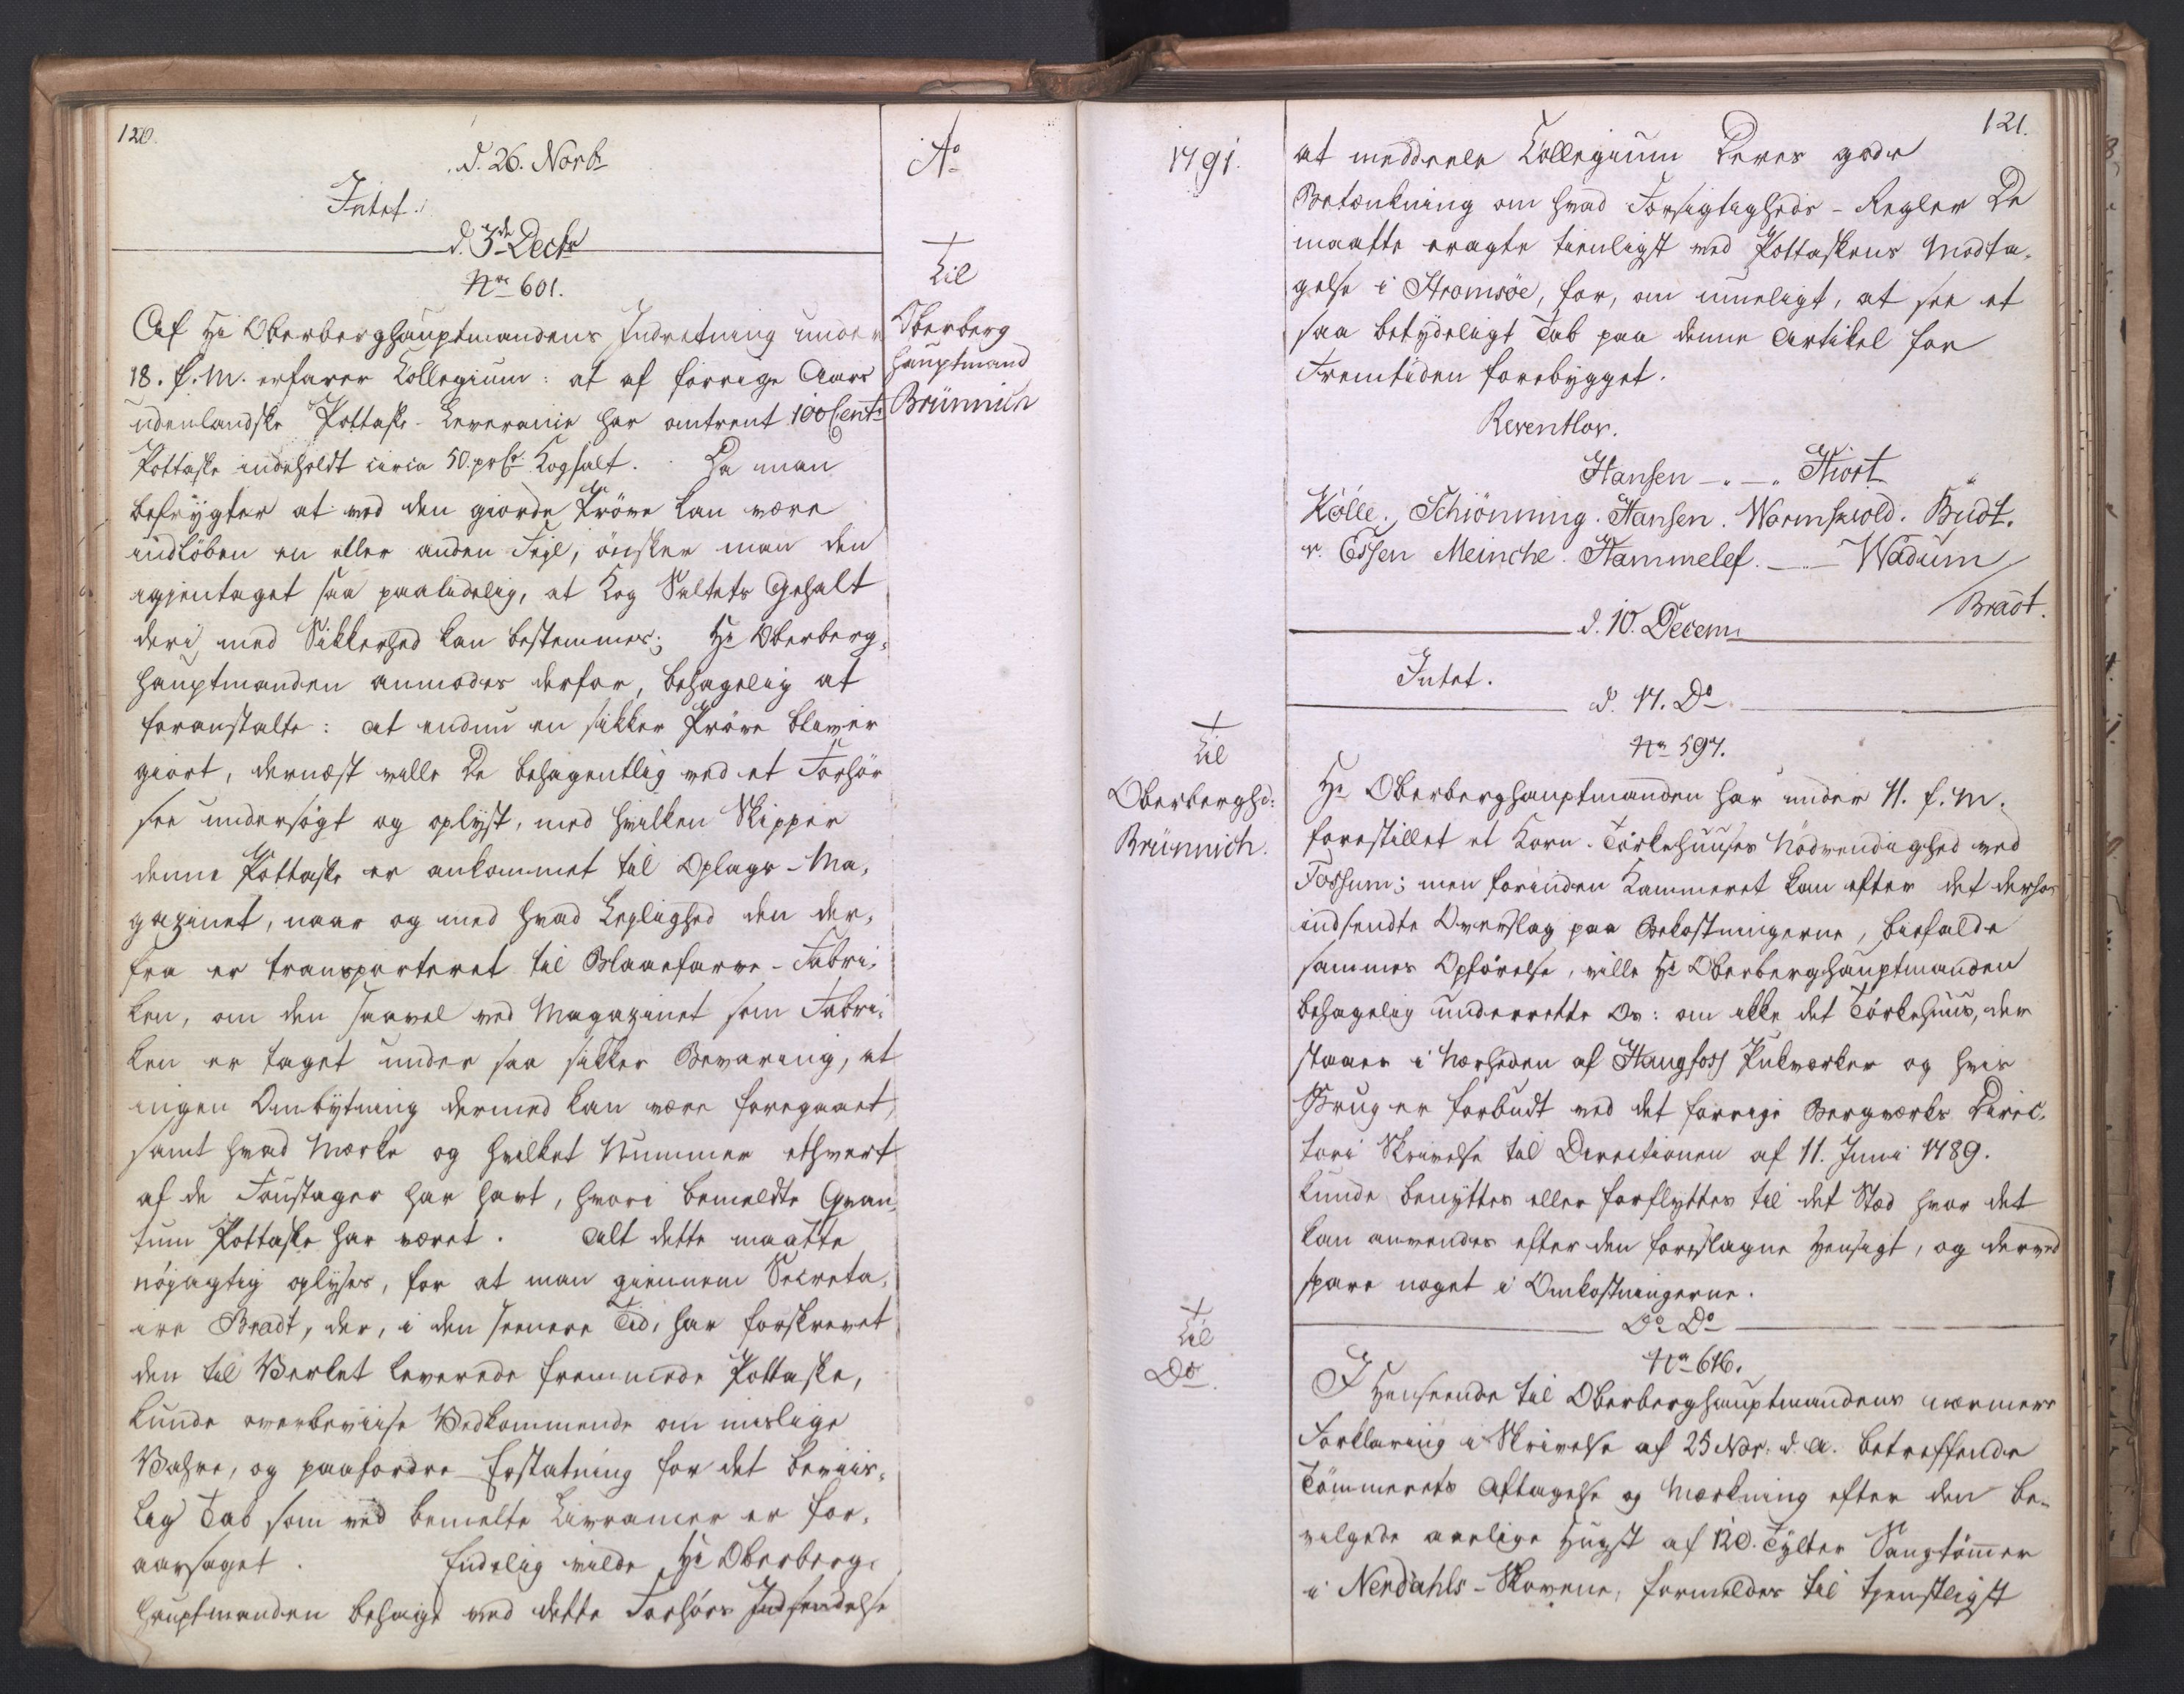 120.
d. 26. Novbr
Ao
Intet.
d. 3de Decbr
No 601.
+
Til
Oberberg
hauptmand
Brünnich
Af Hr Oberberghauptmandens Indretning under
18. f. M. erfarer Collegium: at af forrige Aars
udenlandske Pottaske-Leverance har omtrent 100 Cent:
Pottaske indeholdt circa 50. prCt Kogsalt. Da man
befrygter at ved den giorde Pröve kan være
indlöben en eller anden Fejl, önsker man den
igjentaget saa paalidelig, at Kog Saltets Gehalt
deri med Sikkerhed kan bestemmes; Hr Oberberg-
hauptmanden anmodes derfor, behagelig at
foranstalte: at endnu en sikker Pröve bliver
giort, dernæst ville De behagentlig ved et Forhör
see undersögt og oplyst, med hvilken Skipper
denne Pottaske er ankommet til Oplags-Ma-
gazinet, naar og med hvad Leylighed den der-
fra er transporteret til Blaaefarve-Fabri-
ken, om den saavel ved Magazinet som Fabri-
ken er taget under saa sikker Bevaring, at
ingen Ombytning dermed kan være foregaaet,
samt hvad Mærke og hvilket Nummer ethvert
af de Foustager har havt, hvori bemeldte Qvan-
tum Pottaske har været. Alt dette maatte
nöjagtig oplyses, for at man giennem Secreta-
ire Bradt, der, i den seenere Tid, har forskrevet
den til Verket leverede fremmede Pottaske,
kunde overbeviise Vedkommende om mislige
Vahre, og paafordre Erstatning for det beviis-
lig Tab som ved bemelte Livrancer er for-
aarsaget. Endelig vilde Hr Oberberg-
hauptmanden behage ved dette Forhörs Indsendelse
1791.
121.
at meddeele Collegium Deres gode
Betænkning om hvad Forsigtigheds-Regler De
maatte eragte tienligst ved Pottaskens Modta-
gelse i Stromsöe, for, om mueligt, at see et
saa betydeligt Tab paa denne Artikel for
Fremtiden forebygget.
Reventlov.
Hansen - . - . Hiort
Kölle. Schiönning. Hansen. Wormskiold. Budt.
v. Essen Meinche. Hammelef. - Wadum
Bradt.
d. 10. Decem:
Intet.
d. 17. Do
No 597.
+
Til
Oberberghd:
Brünnich.
Hr Oberberghauptmanden har under 11. f. M.
forestillet et Korn-Törkehuuses Nödvendighed ved
Fossum; men forinden Kammeret kan efter det derhos
indsendte Overslag paa Bekostningerne, bifalde
sammes Opförelse, ville Hr Oberberghauptmanden
behagelig underrette Os: om ikke det Törkehuus, der
staaer i Nærheden af Haugfoss Pukverker og hvis
Brug er forbudt ved det forrige Bergværks Direc-
tori Skrivelse til Directionen af 11. Juni 1789.
kunde benyttes eller forflyttes til det Stæd hvor det
kan anvendes efter den foreslagne Hensigt, og derved
spare noget i Omkostningerne.
Do Do
No 616.
+
Til
Do.
I Henseende til Oberberghauptmandens nærmere
Forklaring i Skrivelse af 25 Nov. d. A. betreffende
Tömmerets Aftagelse og Mærkning efter den be-
vilgede aarlige Hugst af 120. Tylter Saugtömer
i Nerdahls-Skovene, formeldes til tjenstligst